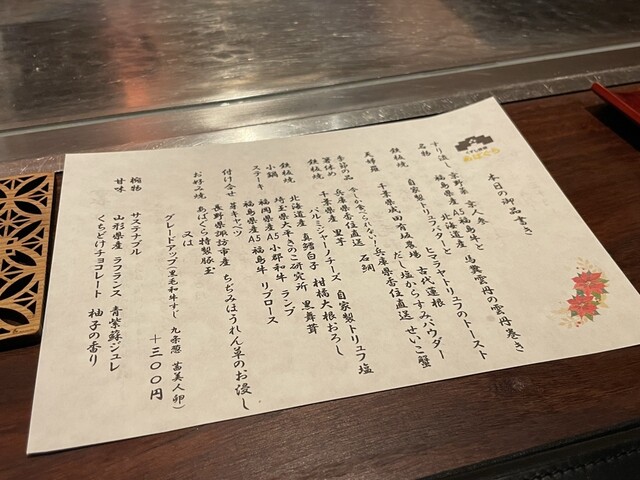 あばぐら
本日の御品書き
すり流し 京野菜 京人参
名物 福島県産A5福島牛と 北海道産 馬糞雲丹の雲丹巻き
自家製トリュフバターと ヒマラヤトリュフのトースト
鉄板焼 千葉県成田有坂農場 古代蓮根
だし塩からすみパウダー
天婦羅 今しか食べられない！兵庫県香住直送 せいこ蟹
季節の品 兵庫県香住直送 石鯛
箸休め 千葉県産 里子
パルミジャーノチーズ 自家製トリュフ塩
鉄板焼 北海道産 真鱈白子 柑橘大根おろし
鉄板焼 埼玉県大平きのこ研究所 黒舞茸
小鍋 福岡県産A5小郡和牛 ランプ
ステーキ 福島県産A5福島牛 リブロース
付け合せ 芽キャベツ
長野県諏訪市産 ちぢみほうれん草のお浸し
お好み焼 あばぐら特製豚玉
又は
グレードアップ(黒毛和牛すじ 九条葱 茜美人卵)
＋３００円
椀物 サステナブル
甘味 山形県産 ラフランス 青紫蘇ジュレ
くちどけチョコレート 柚子の香り